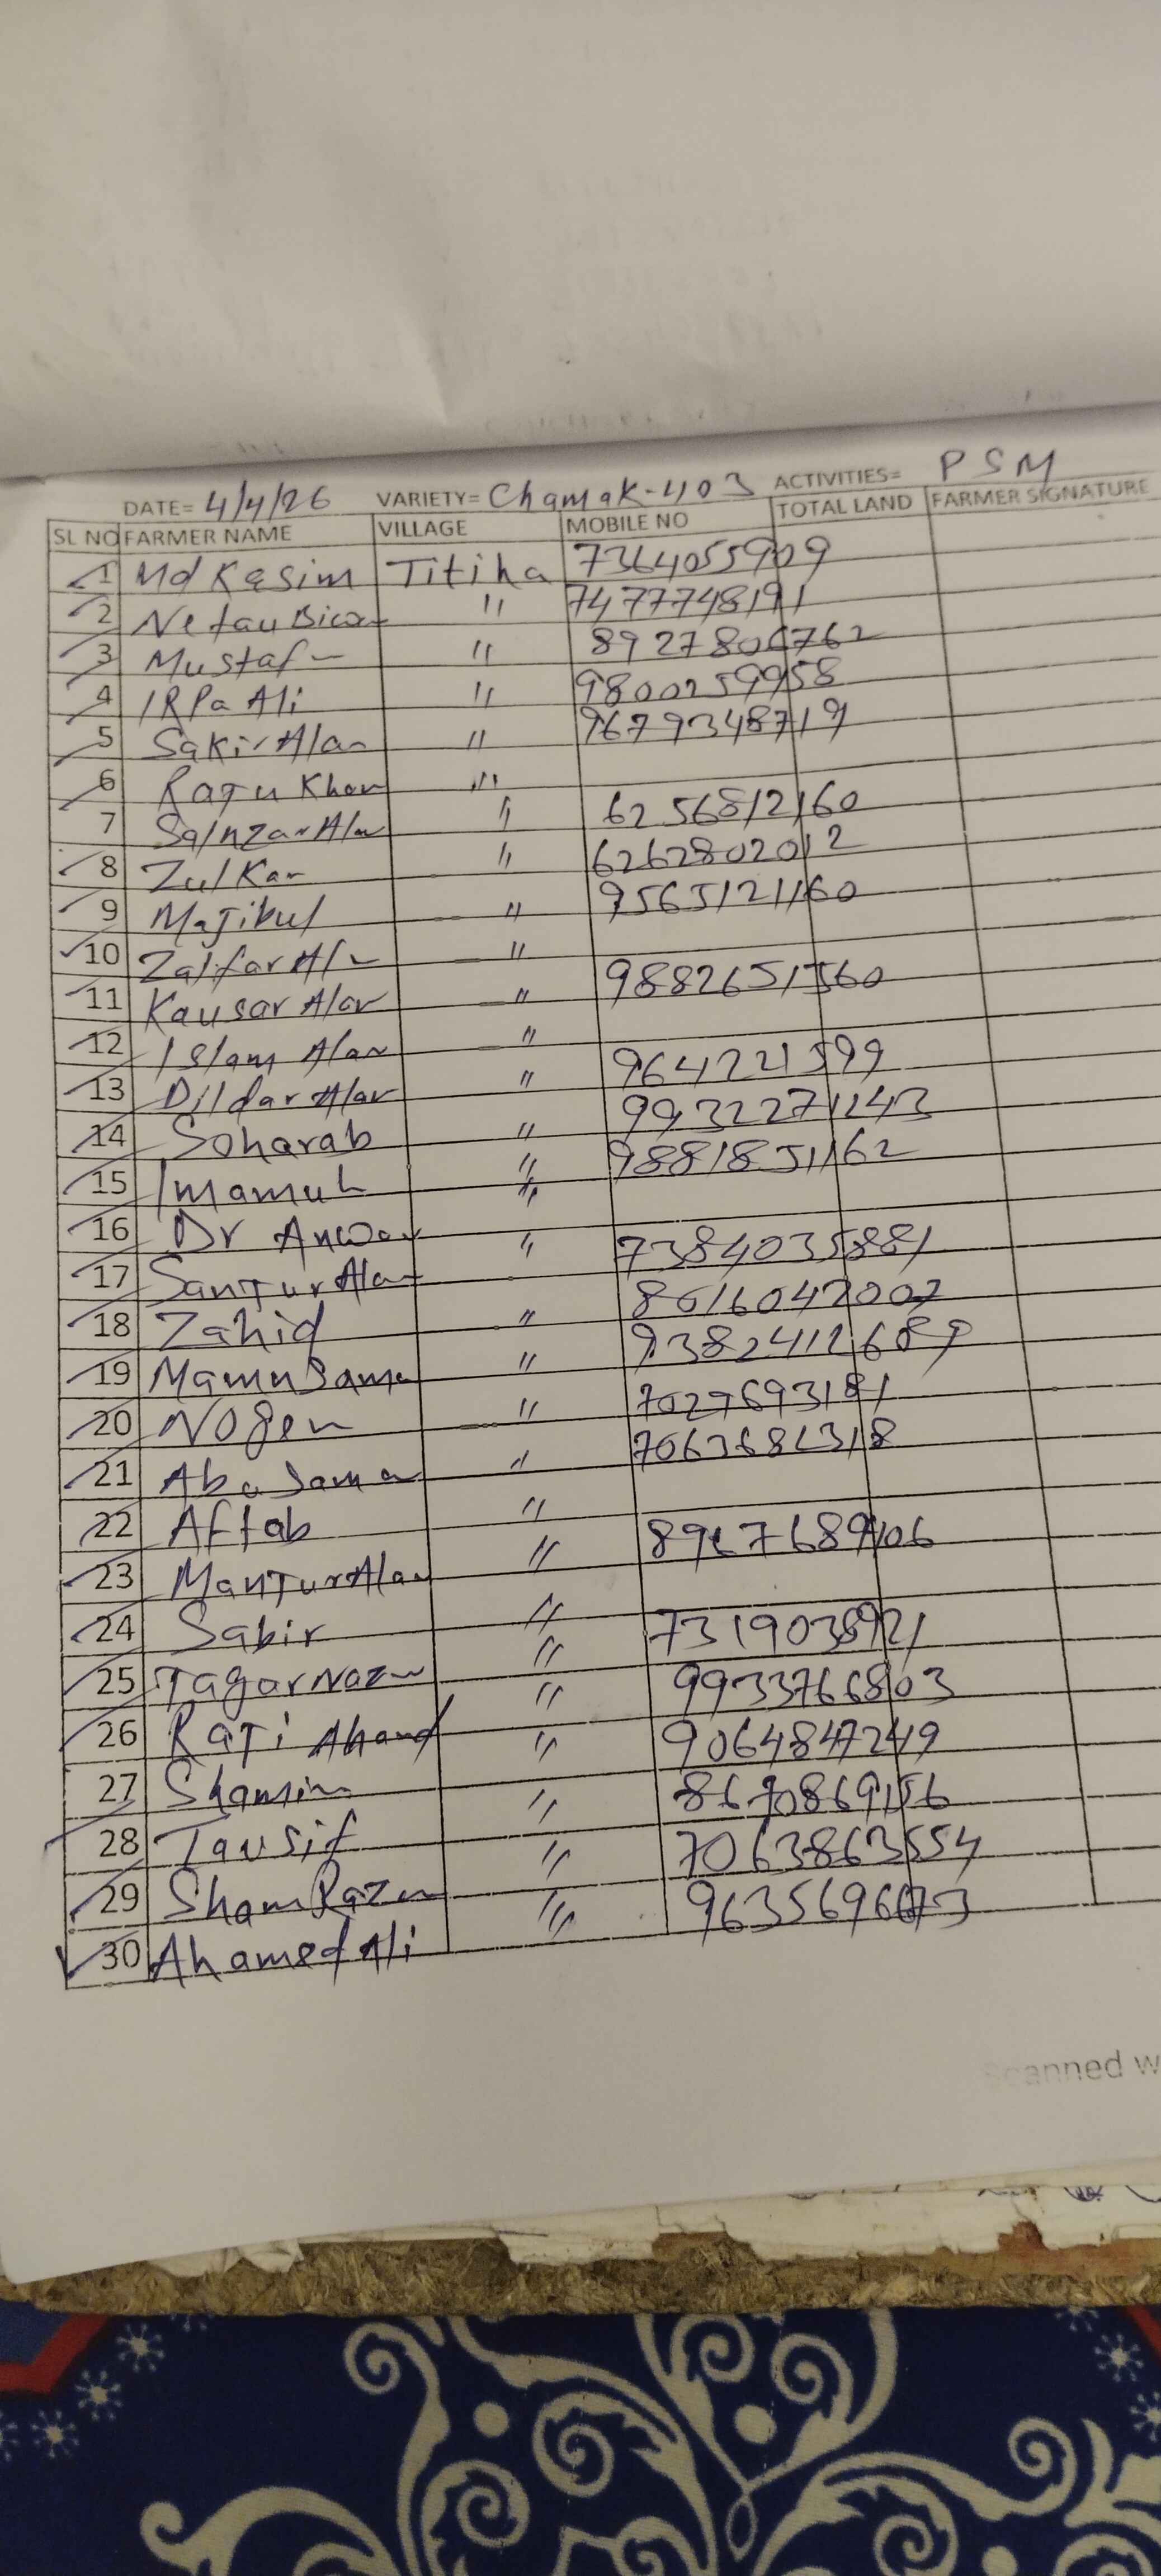 DATE= 4/4/26 VARIETY= Chamak-403 ACTIVITIES= PSM
SL NO FARMER NAME VILLAGE MOBILE NO TOTAL LAND FARMER SIGNATURE
1 Md Kasim Titiha 7364055909
2 Netau 〃 7477748191
3 Mustaf 〃 8927806762
4 IRPa Ali 〃 9800259958
5 Sakir Alam 〃 9679348719
6 Raju Khan 〃
7 Alam 〃 6256812160
8 Zulkar 〃 6262802012
9 Majibul 〃 9565121160
10 Zalfar 〃
11 Kausar Alam 〃 9882651560
12 Islam Alam 〃
13 Dildar Alam 〃 964221599
14 Soharab 〃 9932271243
15 Imamul 〃 9881851162
16 Dr Anwar 〃
17 Sanjur Alam 7384035881
18 Zahid 〃 8016042007
19 Mamu 〃 9382412689
20 Nogen 〃 7029693181
21 Aba 〃
22 Aftab 〃
23 Manjur Alam 〃
24 Sabir 〃 7319038921
25 Tagar 〃 9933766803
26 Raji 〃 9064847249
27 Shamim 〃 8670869156
28 Tausif 〃 7063863554
29 Sham 〃
30 Ahamed Ali
Scanned w